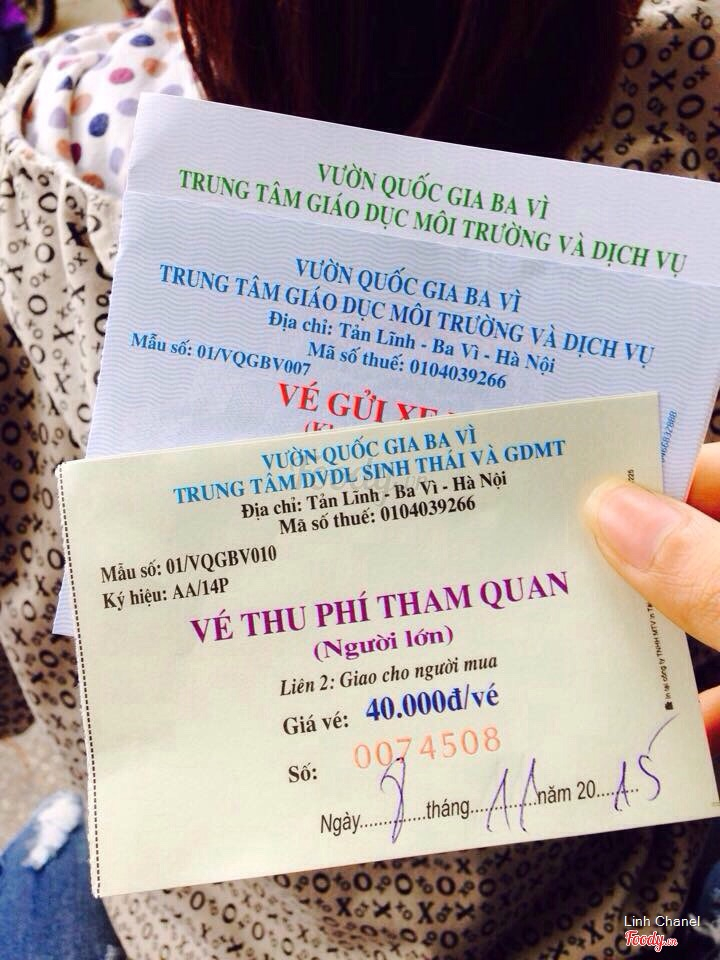 VƯỜN QUỐC GIA BA VÌ
TRUNG TÂM GIÁO DỤC MÔI TRƯỜNG VÀ DỊCH VỤ
VƯỜN QUỐC GIA BA VÌ
TRUNG TÂM GIÁO DỤC MÔI TRƯỜNG VÀ DỊCH VỤ
Địa chỉ: Tản Lĩnh - Ba Vì - Hà Nội
Mã số thuế: 0104039266
Mẫu số: 01/VQGBV007
VÉ GỬI XE
VƯỜN QUỐC GIA BA VÌ
TRUNG TÂM DVDL SINH THÁI VÀ GDMT
Địa chỉ: Tản Lĩnh - Ba Vì - Hà Nội
Mã số thuế: 0104039266
Mẫu số: 01/VQGBV010
Ký hiệu: AA/14P
VÉ THU PHÍ THAM QUAN
(Người lớn)
Liên 2: Giao cho người mua
Giá vé: 40.000đ/vé
Số: 0074508
Ngày 8 tháng 11 năm 2015
In tại công ty TNHH MTV In
Linh Chanel
Foody.vn